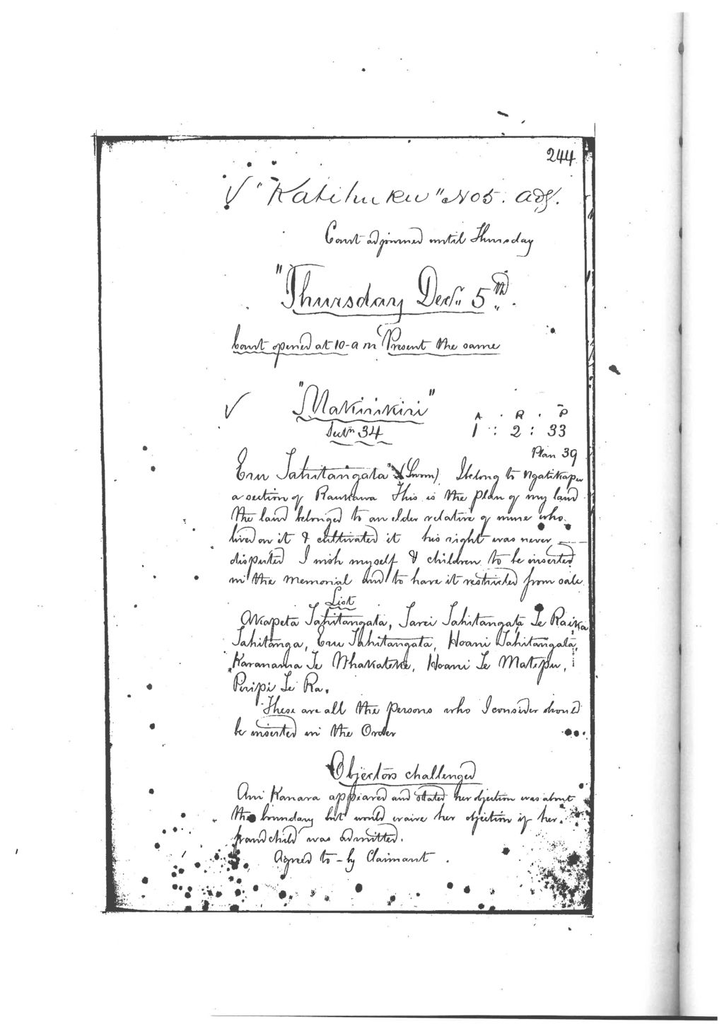 244
√ "Katihuku" No5. adj.
Court adjourned until Thursday
"Thursday Decr. 5th.
Court opened at 10-a m Present the same
√ "Makirikiri"
Sectn 34
A . R . P
1 : 2 : 33
Plan 39
Eru Tahitangata (Sworn). I belong to Ngatikapu
a section of Raukawa This is the plan of my land
the land belonged to an elder relative of mine who
lived on it & cultivated it his right was never
disputed I wish myself & children to be inserted
in the memorial and to have it restricted from sale
List
Akapeta Tahitangata, Tarei Tahitangata Te Raika
Tahitanga, Eru Tahitangata, Hoani Tahitangata,
Karanama Te Whakaheke, Hoani Te Matepu,
Piripi Te Ra.
These are all the persons who I consider should
be inserted in the Order
Objectors challenged
Ani Kanara appeared and stated her objection was about
the boundary but would waive her objection if her
grandchild was admitted.
Agreed to - by Claimant .